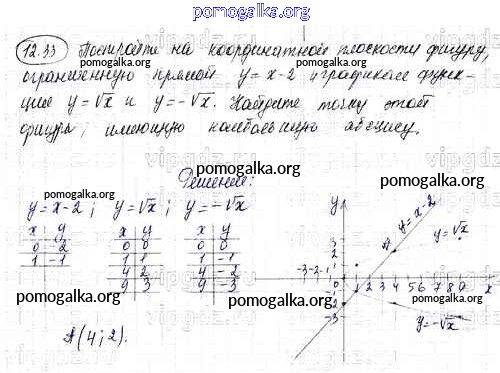 pomogalka.org
12.33 Постройте на координатной плоскости фигуру,
ограниченную прямой y = x-2 и графиками функ-
ций y=√x и y=-√x. Найдите точку этой
фигуры, имеющую наибольшую абсциссу.
pomogalka.org
Решение:
y=x-2; y=√x; y=-√x
x y
0 -2
1 -1
x y
0 0
1 1
4 2
9 3
x y
0 0
1 -1
4 -2
9 -3
A(4;2).
y
y=x-2
y=√x
3
2
1
-3-2-1 0 1 2 3 4 5 6 7 8 9 x
-1
-2
-3
y=-√x
pomogalka.org
pomogalka.org
pomogalka.org
pomogalka.org
pomogalka.org